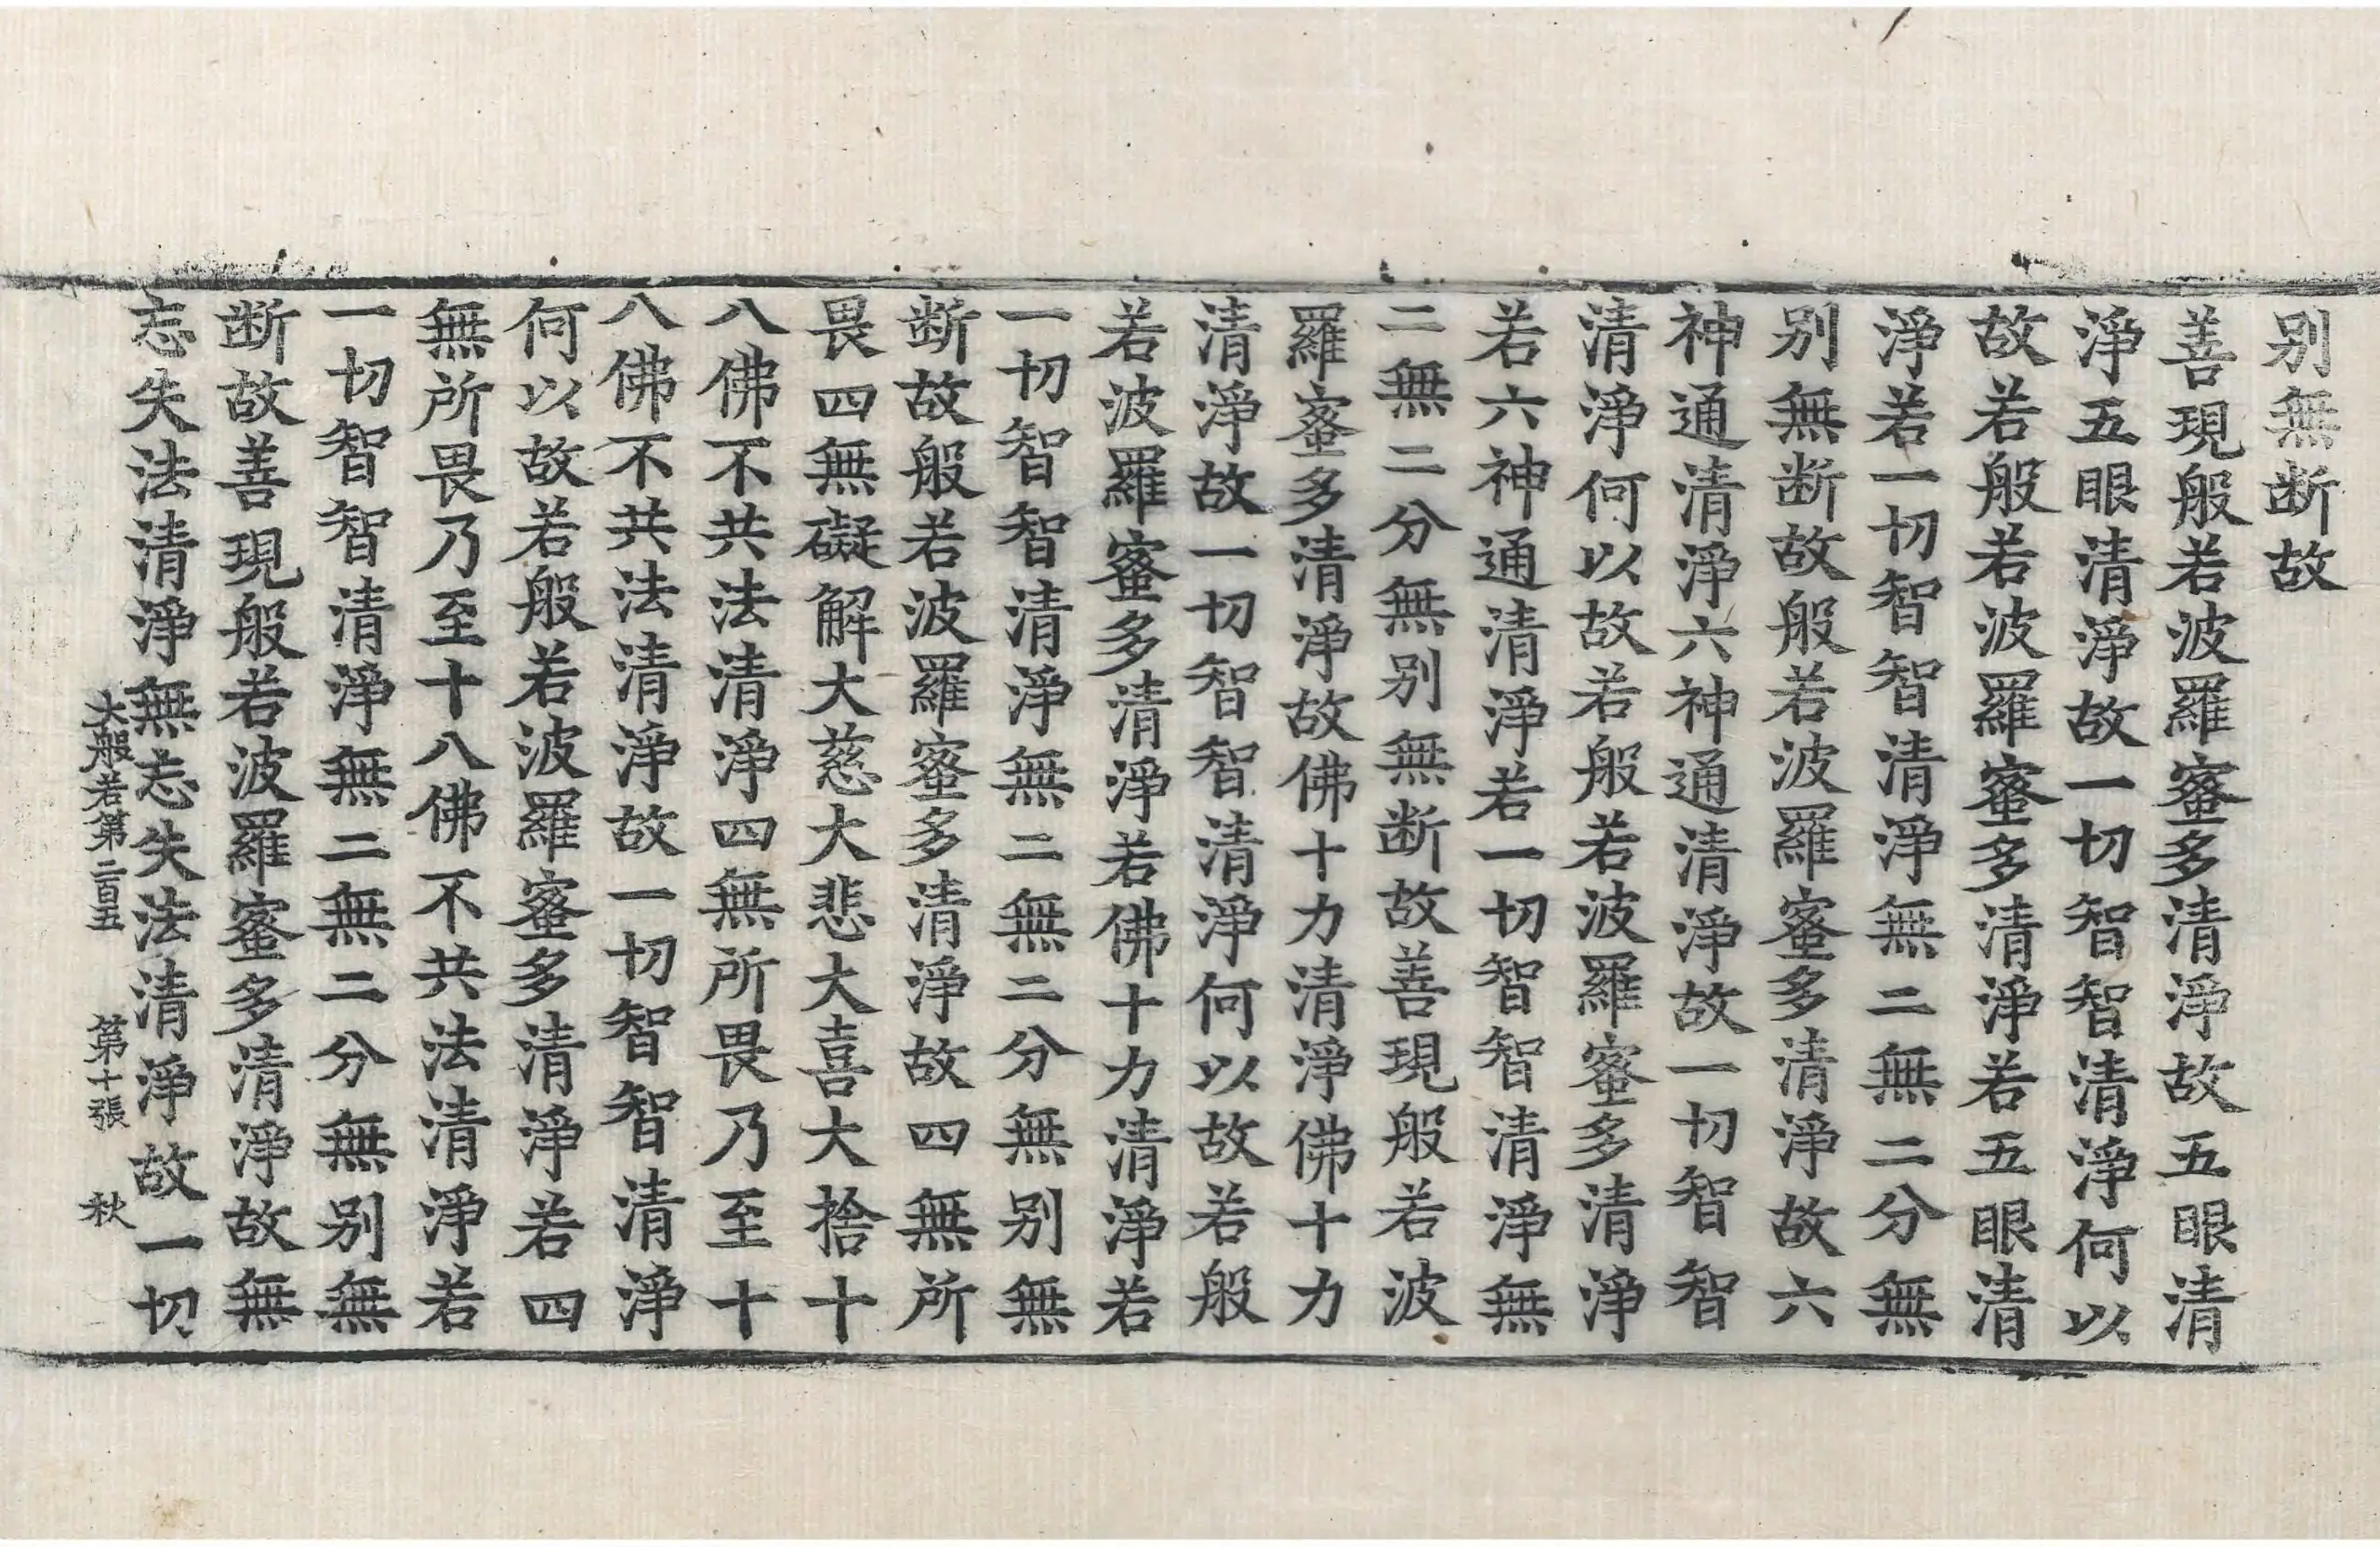 别無断故
善現般若波羅蜜多清淨故五眼清
淨五眼清淨故一切智智清淨何以
故若般若波羅蜜多清淨若五眼清
淨若一切智智清淨無二無二分無
别無断故般若波羅蜜多清淨故六
神通清淨六神通清淨故一切智智
清淨何以故若般若波羅蜜多清淨
若六神通清淨若一切智智清淨無
二無二分無别無断故善現般若波
羅蜜多清淨故佛十力清淨佛十力
清淨故一切智智清淨何以故若般
若波羅蜜多清淨若佛十力清淨若
一切智智清淨無二無二分無别無
断故般若波羅蜜多清淨故四無所
畏四無礙解大慈大悲大喜大捨十
八佛不共法清淨四無所畏乃至十
八佛不共法清淨故一切智智清淨
何以故若般若波羅蜜多清淨若四
無所畏乃至十八佛不共法清淨若
一切智智清淨無二無二分無别無
断故善現般若波羅蜜多清淨故無
忘失法清淨無忘失法清淨故一切
大般若第二百五 第十張 秋